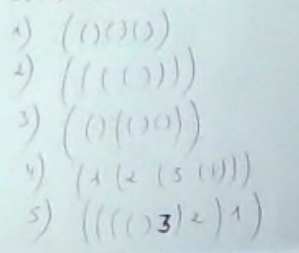 1) (()()())
2) (((())))
3) (()(()()))
4) (1 (2 (3 ())))
5) (((()3)2)1)